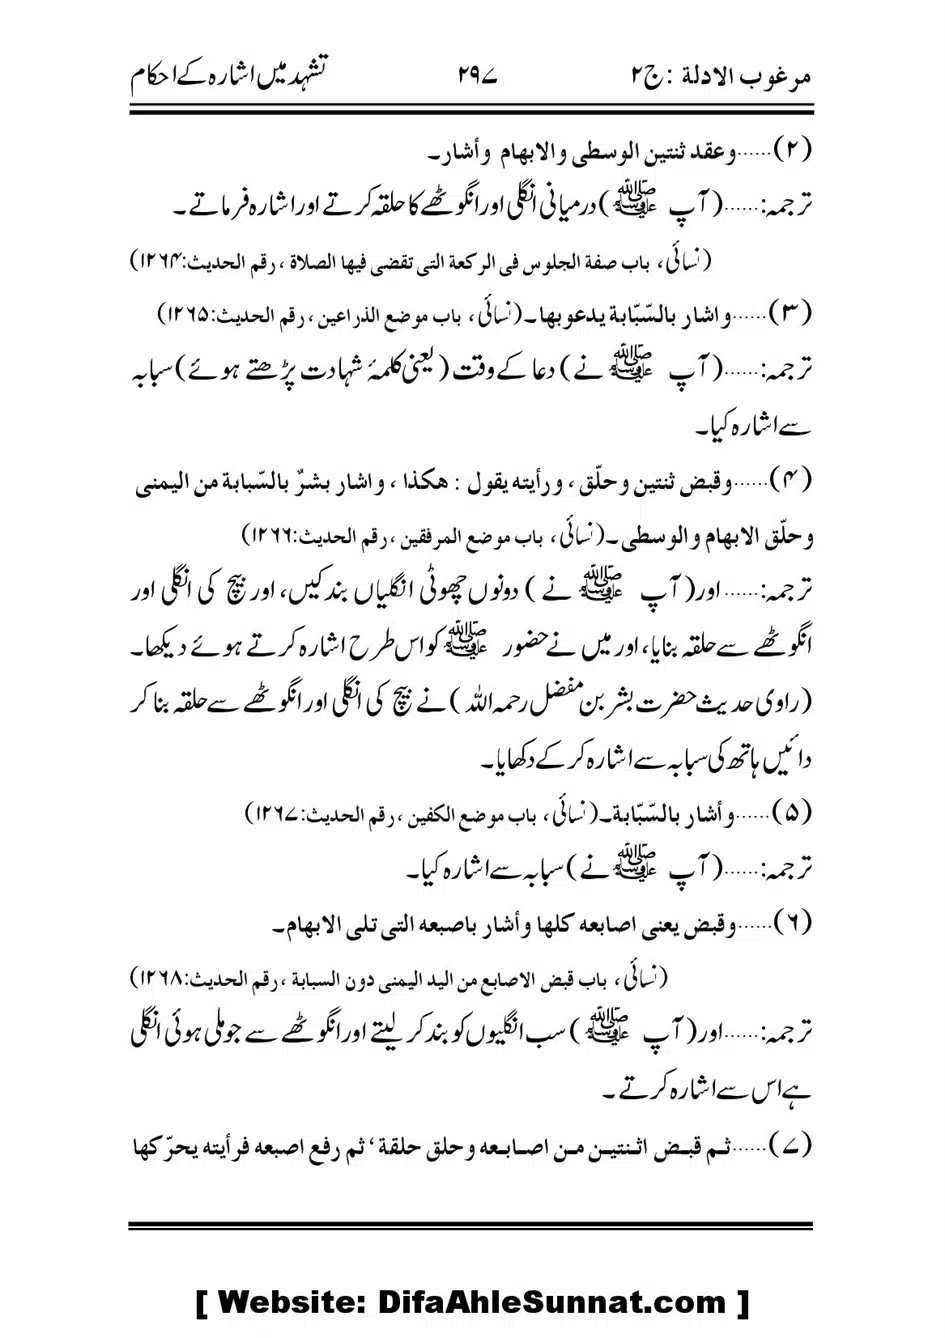 مرغوب الادلة : ج۲ ۲۹۷ تشہد میں اشارہ کے احکام
(۲)......وعقد ثنتین الوسطی والابهام وأشار۔
ترجمہ:......(آپ ﷺ) درمیانی انگلی اور انگوٹھے کا حلقہ کرتے اور اشارہ فرماتے۔
(نسائی، باب صفة الجلوس فی الرکعة التی تقضی فیها الصلاة ، رقم الحدیث:۱۲۶۴)
(۳)......واشار بالسّبّابة یدعوبها۔(نسائی، باب موضع الذراعین ، رقم الحدیث:۱۲۶۵)
ترجمہ:......(آپ ﷺ نے) دعا کے وقت (یعنی کلمۂ شہادت پڑھتے ہوئے) سبابہ
سے اشارہ کیا۔
(۴)......وقبض ثنتین وحلّق ، ورأیته یقول : هکذا ، واشار بشرٌ بالسّبابة من الیمنی
وحلّق الابهام والوسطی۔(نسائی، باب موضع المرفقین ، رقم الحدیث:۱۲۶۶)
ترجمہ:......اور(آپ ﷺ نے) دونوں چھوٹی انگلیاں بند کیں، اور بیچ کی انگلی اور
انگوٹھے سے حلقہ بنایا، اور میں نے حضور ﷺ کو اس طرح اشارہ کرتے ہوئے دیکھا۔
(راوی حدیث حضرت بشر بن مفضل رحمہ اللہ) نے بیچ کی انگلی اور انگوٹھے سے حلقہ بنا کر
دائیں ہاتھ کی سبابہ سے اشارہ کرکے دکھایا۔
(۵)......وأشار بالسّبّابة۔(نسائی، باب موضع الکفین ، رقم الحدیث:۱۲۶۷)
ترجمہ:......(آپ ﷺ نے) سبابہ سے اشارہ کیا۔
(۶)......وقبض یعنی اصابعه کلها وأشار باصبعه التی تلی الابهام۔
(نسائی، باب قبض الاصابع من الید الیمنی دون السبابة ، رقم الحدیث:۱۲۶۸)
ترجمہ:......اور(آپ ﷺ) سب انگلیوں کو بند کر لیتے اور انگوٹھے سے جو ملی ہوئی انگلی
ہے اس سے اشارہ کرتے۔
(۷)......ثم قبض اثنتین من اصابعه وحلق حلقة، ثم رفع اصبعه فرأیته یحرّکها
[ Website: DifaAhleSunnat.com ]